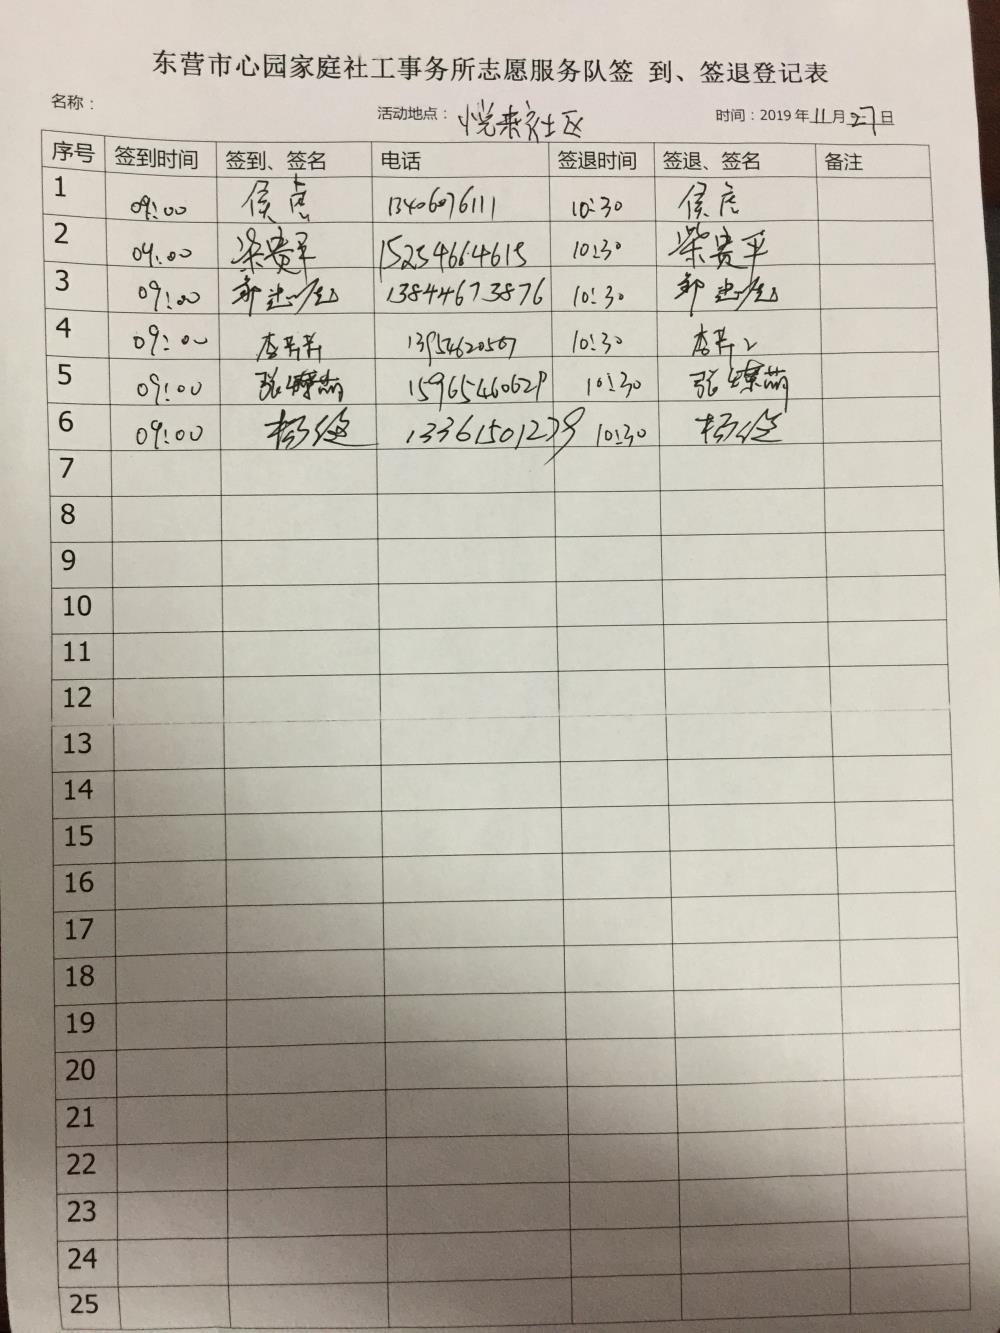 东营市心园家庭社工事务所志愿服务队签 到、签退登记表
名称： 活动地点：悦来社区 时间：2019年11月27日
序号 签到时间 签到、签名 电话 签退时间 签退、签名 备注
1 09:00 侯虎 13406076111 10:30 侯虎
2 09:00 柴贵平 15254664615 10:30 柴贵平
3 09:00 13844673876 10:30
4 09:00 李苹苹 13954620567 10:30 李苹
5 09:00 张 15965460629 10:30 张
6 09:00 杨 13361501279 10:30 杨
7
8
9
10
11
12
13
14
15
16
17
18
19
20
21
22
23
24
25